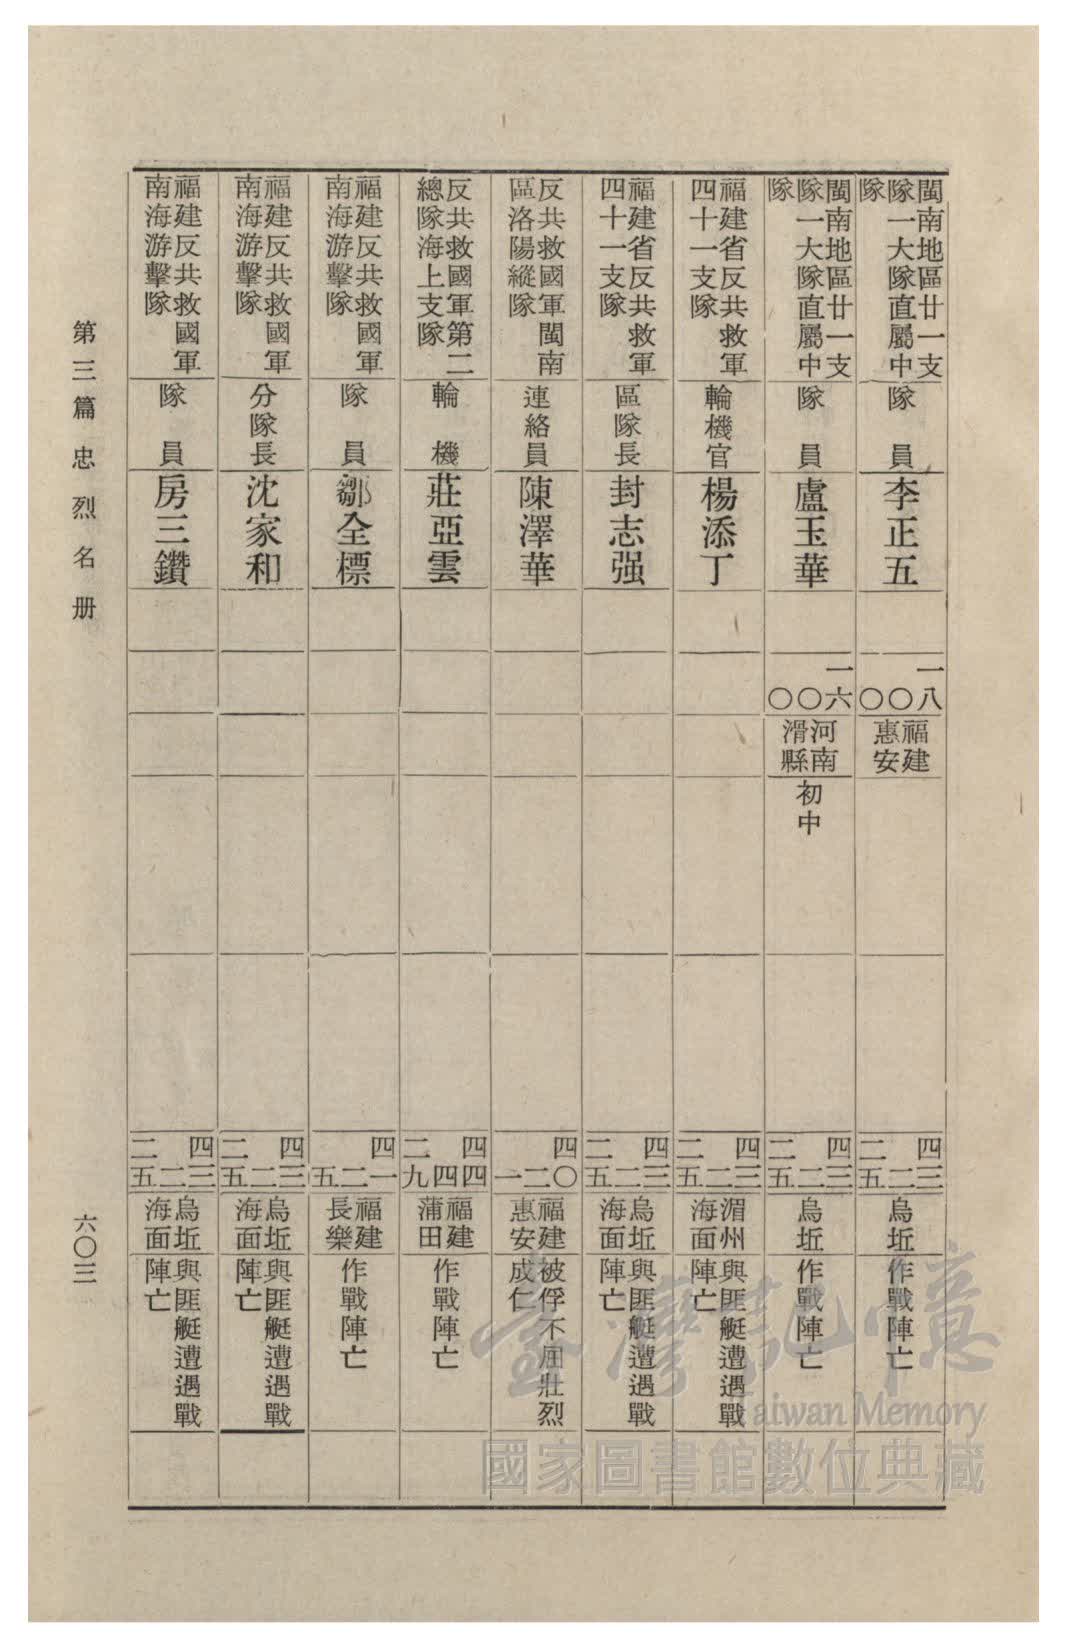 閩南地區廿一支
隊一大隊直屬中
隊
隊員
李正五
一八
〇
〇
福建
惠安
四三
二
二五
烏坵
作戰陣亡
閩南地區廿一支
隊一大隊直屬中
隊
隊員
盧玉華
一六
〇
〇
河南
滑縣
初中
四三
二
二五
烏坵
作戰陣亡
福建省反共救軍
四十一支隊
輪機官
楊添丁
四三
二
二五
湄州
海面
與匪艇遭遇戰
陣亡
福建省反共救軍
四十一支隊
區隊長
封志强
四三
二
二五
烏坵
海面
與匪艇遭遇戰
陣亡
反共救國軍閩南
區洛陽縱隊
連絡員
陳澤華
四〇
二
一
福建
惠安
被俘不屈壯烈
成仁
反共救國軍第二
總隊海上支隊
輪機
莊亞雲
四四
四
二九
福建
蒲田
作戰陣亡
福建反共救國軍
南海游擊隊
隊員
鄒全標
四一
二
五
福建
長樂
作戰陣亡
福建反共救國軍
南海游擊隊
分隊長
沈家和
四三
二
二五
烏坵
海面
與匪艇遭遇戰
陣亡
福建反共救國軍
南海游擊隊
隊員
房三鑽
四三
二
二五
烏坵
海面
與匪艇遭遇戰
陣亡
第三篇 忠烈名册
六〇三
臺灣記憶
Taiwan Memory
國家圖書館數位典藏